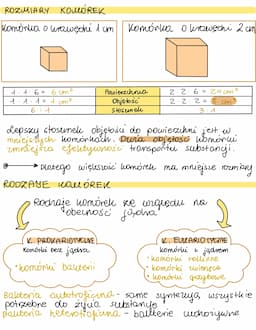 ROZMIARY KOMÓREK
Komórka o krawędzi 1 cm
Komórka o krawędzi 2 cm
1·1·6 = 6 cm² Powierzchnia 2·2·6 = 24 cm²
1·1·1 = 1 cm³ Objętość 2·2·2 = 8 cm³
6:1 Stosunek 3:1
Lepszy stosunek objętości do powierzchni jest w
mniejszych komórkach. Duża objętość komórki
zmniejsza efektywność transportu substancji.
Dlatego większość komórek ma mniejsze rozmiary
RODZAJE KOMÓREK
Rodzaje komórek ze względu na
obecność jądra
K. PROKARIOTYCZNE
komórki bez jądra
• komórki bakterii
K. EUKARIOTYCZNE
komórki z jądrem
• komórki roślinne
• komórki zwierzęce
• komórki grzybowe
bakteria autotroficzna - same syntezują wszystkie
potrzebne do życia substancje
bakteria heterotroficzna - bakterie cudzożywne